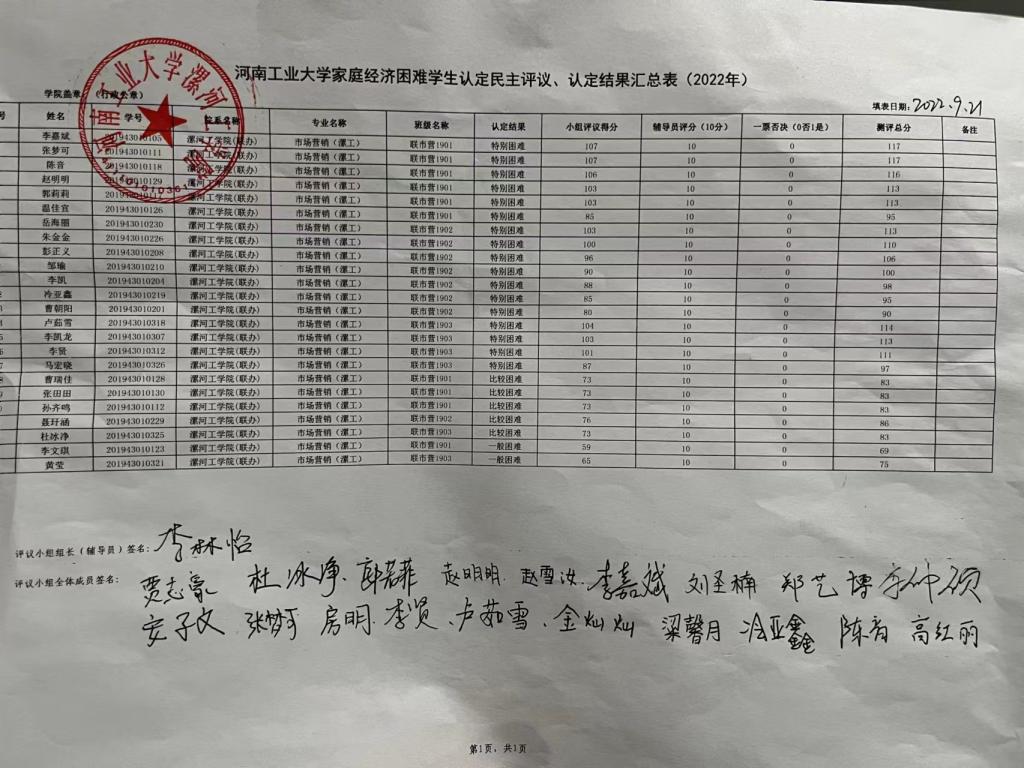 河南工业大学家庭经济困难学生认定民主评议、认定结果汇总表（2022年）
学院盖章：（行政公章） 填表日期：2022.9.21
号 姓名 学号 院系名称 专业名称 班级名称 认定结果 小组评议得分 辅导员评分（10分） 一票否决（0否1是） 测评总分 备注
李嘉斌 201943010105 漯河工学院(联办) 市场营销（漯工） 联市营1901 特别困难 107 10 0 117
张梦可 201943010111 漯河工学院(联办) 市场营销（漯工） 联市营1901 特别困难 107 10 0 117
陈音 201943010118 漯河工学院(联办) 市场营销（漯工） 联市营1901 特别困难 106 10 0 116
赵明明 201943010129 漯河工学院(联办) 市场营销（漯工） 联市营1901 特别困难 103 10 0 113
郭莉莉 漯河工学院(联办) 市场营销（漯工） 联市营1901 特别困难 103 10 0 113
温佳宜 201943010126 漯河工学院(联办) 市场营销（漯工） 联市营1901 特别困难 85 10 0 95
岳海丽 201943010230 漯河工学院(联办) 市场营销（漯工） 联市营1902 特别困难 103 10 0 113
朱金金 201943010226 漯河工学院(联办) 市场营销（漯工） 联市营1902 特别困难 100 10 0 110
彭正义 201943010208 漯河工学院(联办) 市场营销（漯工） 联市营1902 特别困难 96 10 0 106
邹瑜 201943010210 漯河工学院(联办) 市场营销（漯工） 联市营1902 特别困难 90 10 0 100
李凯 201943010204 漯河工学院(联办) 市场营销（漯工） 联市营1902 特别困难 88 10 0 98
冷亚鑫 201943010219 漯河工学院(联办) 市场营销（漯工） 联市营1902 特别困难 85 10 0 95
曹朝阳 201943010201 漯河工学院(联办) 市场营销（漯工） 联市营1902 特别困难 80 10 0 90
卢茹雪 201943010318 漯河工学院(联办) 市场营销（漯工） 联市营1903 特别困难 104 10 0 114
李凯龙 201943010307 漯河工学院(联办) 市场营销（漯工） 联市营1903 特别困难 103 10 0 113
李贤 201943010312 漯河工学院(联办) 市场营销（漯工） 联市营1903 特别困难 101 10 0 111
马宏晓 201943010326 漯河工学院(联办) 市场营销（漯工） 联市营1903 特别困难 87 10 0 97
曹瑞佳 201943010128 漯河工学院(联办) 市场营销（漯工） 联市营1901 比较困难 73 10 0 83
张田田 201943010130 漯河工学院(联办) 市场营销（漯工） 联市营1901 比较困难 73 10 0 83
孙齐鸣 201943010112 漯河工学院(联办) 市场营销（漯工） 联市营1901 比较困难 73 10 0 83
聂玗涵 201943010229 漯河工学院(联办) 市场营销（漯工） 联市营1902 比较困难 76 10 0 86
杜冰净 201943010325 漯河工学院(联办) 市场营销（漯工） 联市营1903 比较困难 73 10 0 83
李文琪 201943010123 漯河工学院(联办) 市场营销（漯工） 联市营1901 一般困难 59 10 0 69
黄莹 201943010321 漯河工学院(联办) 市场营销（漯工） 联市营1903 一般困难 65 10 0 75
评议小组组长（辅导员）签名：李林怡
评议小组全体成员签名：贾志豪 杜冰净 赵明明 赵雪汝 李嘉斌 刘圣楠 郑艺博
安子文 张梦可 房明 李贤 卢茹雪 金灿灿 梁馨月 冷亚鑫 陈音 高红丽
第1页，共1页